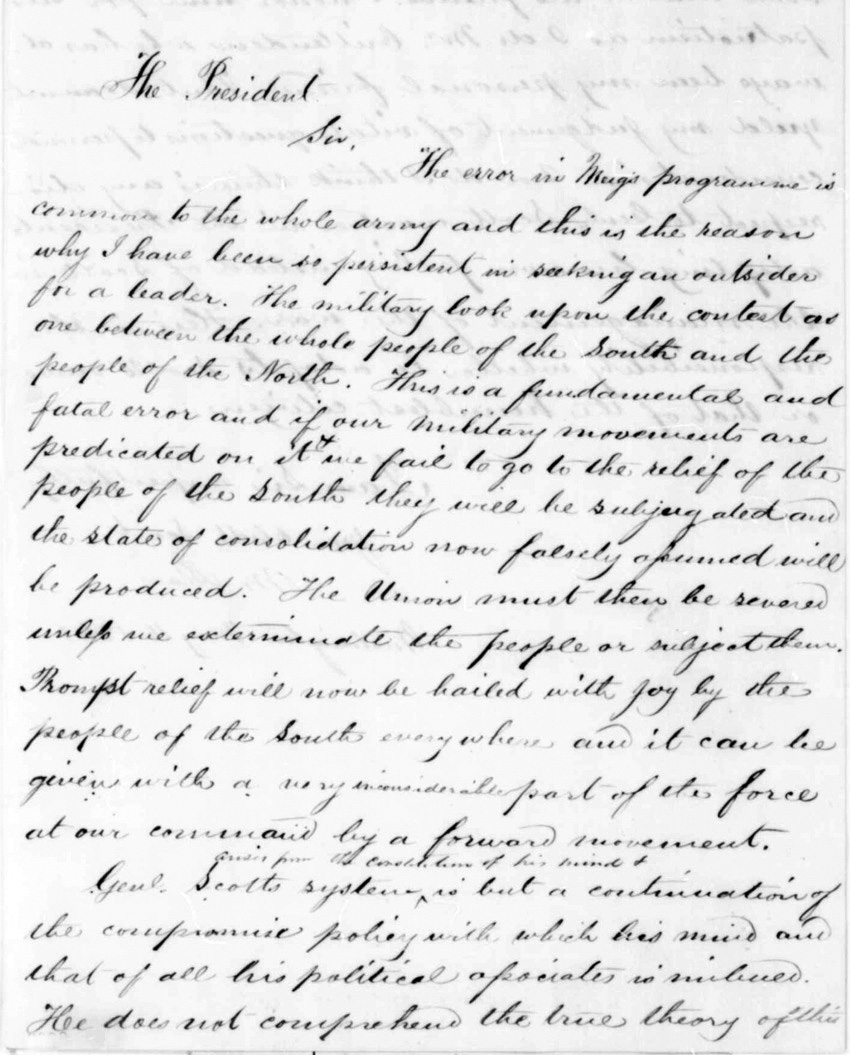 The President
Sir,
The error in Meigs programme is
common to the whole army and this is the reason
why I have been so persistent in seeking an outsider
for a leader. The military look upon the contest as
one between the whole people of the South and the
people of the North. This is a fundamental and
fatal error and if our military movements are
predicated on it & we fail to go to the relief of the
people of the South they will be subjugated and
the state of consolidation now falsely assumed will
be produced. The Union must then be severed
unless we exterminate the people or subject them.
Prompt relief will now be hailed with joy by the
people of the South everywhere and it can be
given with a very inconsiderable part of the force
at our command by a forward movement.
arises from the constitution of his mind &
Genl. Scotts system ‸ is but a continuation of
the compromise policy with which his mind and
that of all his political associates is imbued.
He does not comprehend the true theory of this